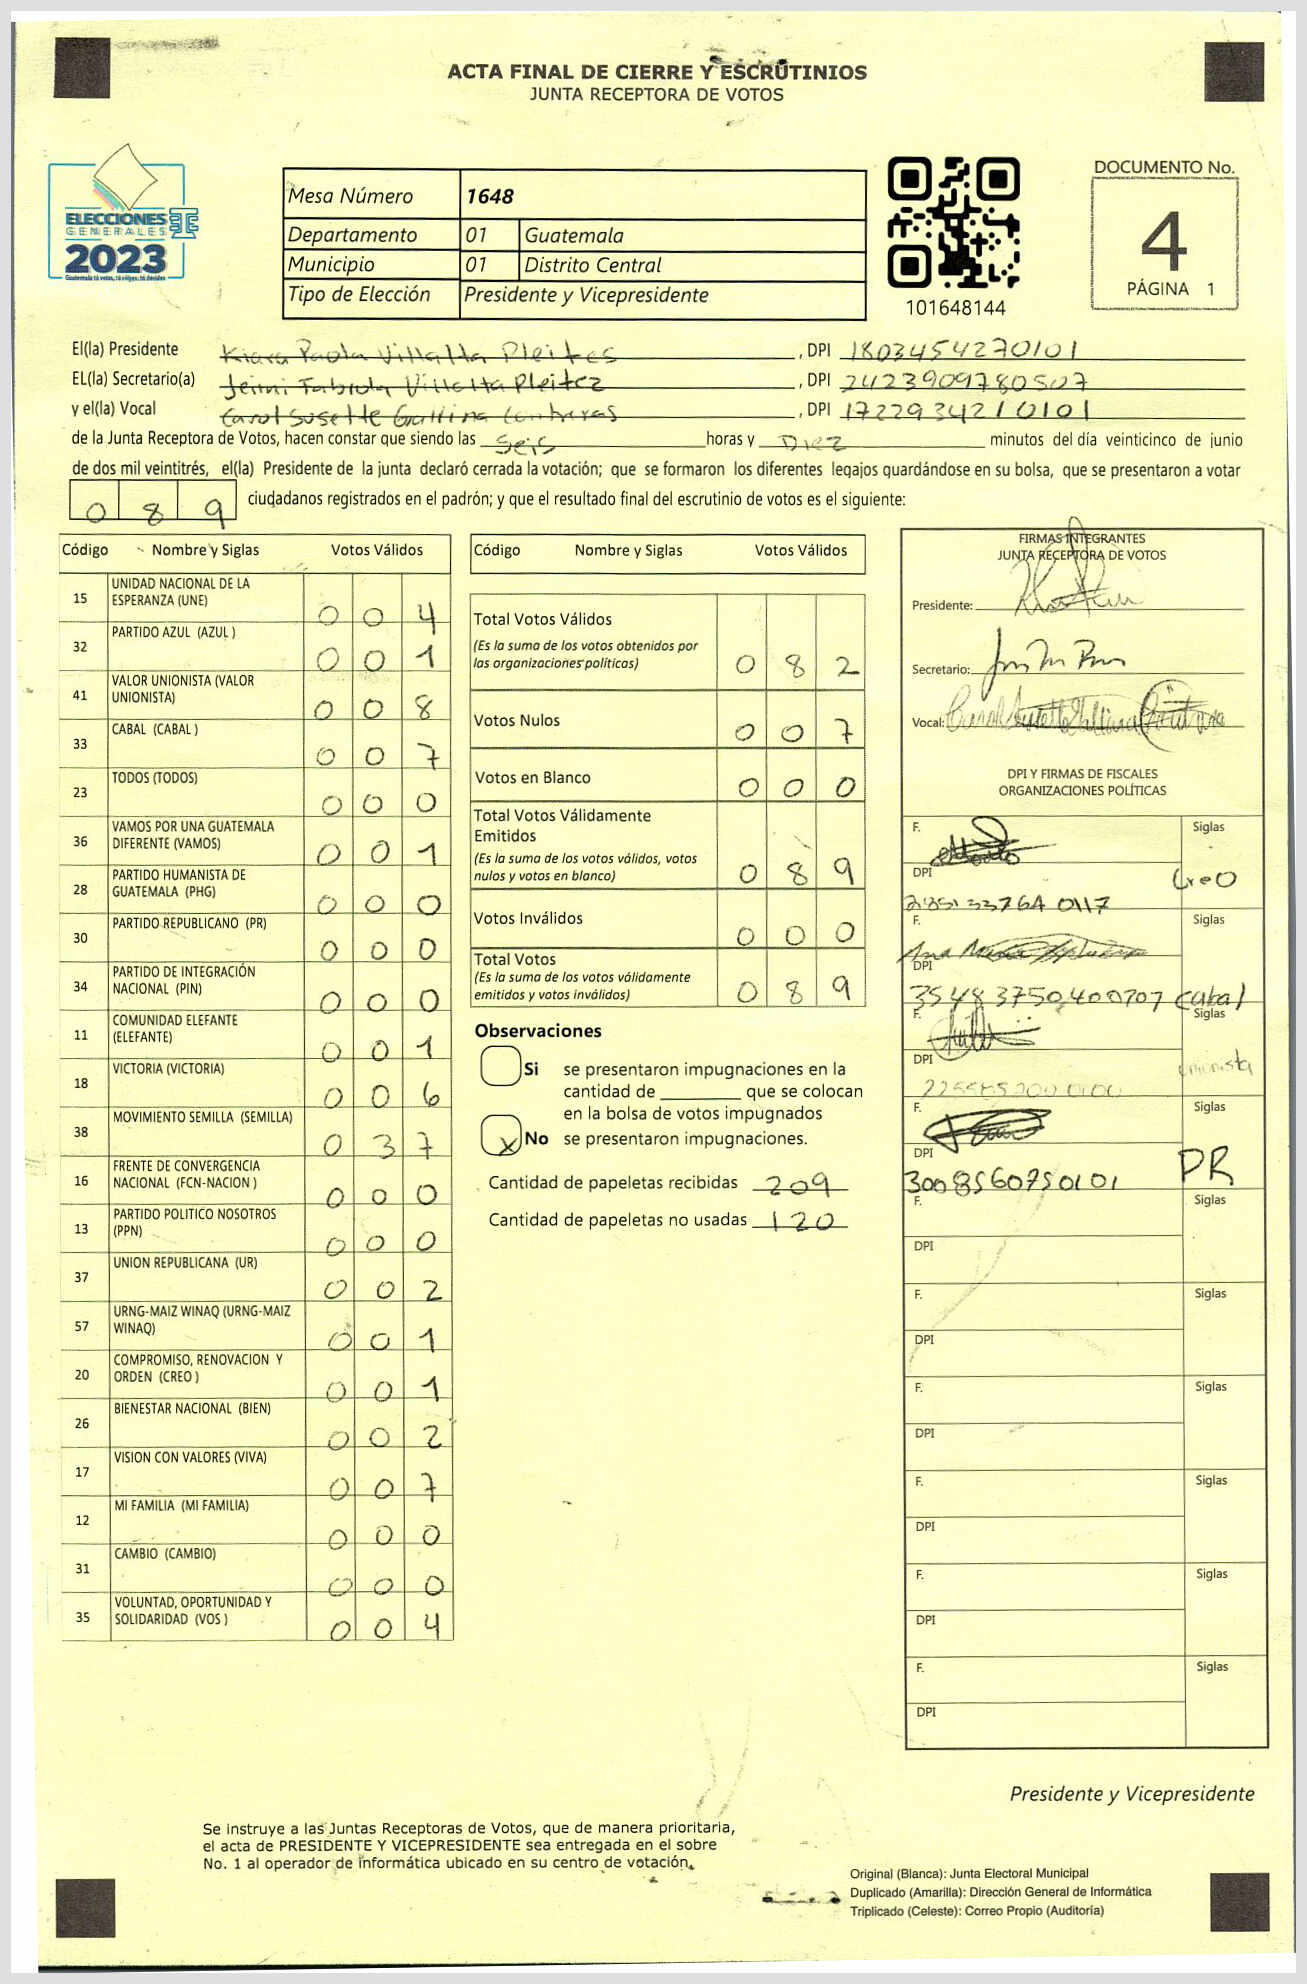 ACTA FINAL DE CIERRE Y ESCRUTINIOS
JUNTA RECEPTORA DE VOTOS
ELECCIONES
GENERALES
2023
Guatemala tú votas, tú eliges, tú decides
Mesa Número 1648
Departamento 01 Guatemala
Municipio 01 Distrito Central
Tipo de Elección Presidente y Vicepresidente
101648144
DOCUMENTO No.
4
PÁGINA 1
El(la) Presidente Kiara Paola Villalta Pleites, DPI 1803454270101
EL(la) Secretario(a) Jeimi Fabiola Villalta Pleitez, DPI 2423909780507
y el(la) Vocal Carol Susette Contreras, DPI 1722934210101
de la Junta Receptora de Votos, hacen constar que siendo las Seis horas y Diez minutos del día veinticinco de junio
de dos mil veintitrés, el(la) Presidente de la junta declaró cerrada la votación; que se formaron los diferentes legajos guardándose en su bolsa, que se presentaron a votar
089 ciudadanos registrados en el padrón; y que el resultado final del escrutinio de votos es el siguiente:
Código Nombre y Siglas Votos Válidos
15 UNIDAD NACIONAL DE LA
ESPERANZA (UNE) 004
32 PARTIDO AZUL (AZUL ) 001
41 VALOR UNIONISTA (VALOR
UNIONISTA) 008
33 CABAL (CABAL ) 007
23 TODOS (TODOS) 000
36 VAMOS POR UNA GUATEMALA
DIFERENTE (VAMOS) 001
28 PARTIDO HUMANISTA DE
GUATEMALA (PHG) 000
30 PARTIDO REPUBLICANO (PR) 000
34 PARTIDO DE INTEGRACIÓN
NACIONAL (PIN) 000
11 COMUNIDAD ELEFANTE
(ELEFANTE) 001
18 VICTORIA (VICTORIA) 006
38 MOVIMIENTO SEMILLA (SEMILLA) 037
16 FRENTE DE CONVERGENCIA
NACIONAL (FCN-NACION ) 000
13 PARTIDO POLITICO NOSOTROS
(PPN) 000
37 UNION REPUBLICANA (UR) 002
57 URNG-MAIZ WINAQ (URNG-MAIZ
WINAQ) 001
20 COMPROMISO, RENOVACION Y
ORDEN (CREO ) 001
26 BIENESTAR NACIONAL (BIEN) 002
17 VISION CON VALORES (VIVA) 007
12 MI FAMILIA (MI FAMILIA) 000
31 CAMBIO (CAMBIO) 000
35 VOLUNTAD, OPORTUNIDAD Y
SOLIDARIDAD (VOS ) 004
Código Nombre y Siglas Votos Válidos
Total Votos Válidos
(Es la suma de los votos obtenidos por
las organizaciones políticas) 082
Votos Nulos 007
Votos en Blanco 000
Total Votos Válidamente
Emitidos
(Es la suma de los votos válidos, votos
nulos y votos en blanco) 089
Votos Inválidos 000
Total Votos
(Es la suma de los votos válidamente
emitidos y votos inválidos) 089
Observaciones
Si se presentaron impugnaciones en la
cantidad de ________ que se colocan
en la bolsa de votos impugnados
X No se presentaron impugnaciones.
Cantidad de papeletas recibidas 209
Cantidad de papeletas no usadas 120
FIRMAS INTEGRANTES
JUNTA RECEPTORA DE VOTOS
Presidente:
Secretario:
Vocal: Carol Susette Contreras
DPI Y FIRMAS DE FISCALES
ORGANIZACIONES POLÍTICAS
F. Siglas
DPI Creo
F. Siglas
Ana
DPI
35483750400707 Cabal
F. Siglas
DPI unionista
F. Siglas
DPI
3008560750101 PR
F. Siglas
DPI
F. Siglas
DPI
F. Siglas
DPI
F. Siglas
DPI
F. Siglas
DPI
F. Siglas
DPI
Presidente y Vicepresidente
Se instruye a las Juntas Receptoras de Votos, que de manera prioritaria,
el acta de PRESIDENTE Y VICEPRESIDENTE sea entregada en el sobre
No. 1 al operador de informática ubicado en su centro de votación.
Original (Blanca): Junta Electoral Municipal
Duplicado (Amarilla): Dirección General de Informática
Triplicado (Celeste): Correo Propio (Auditoría)